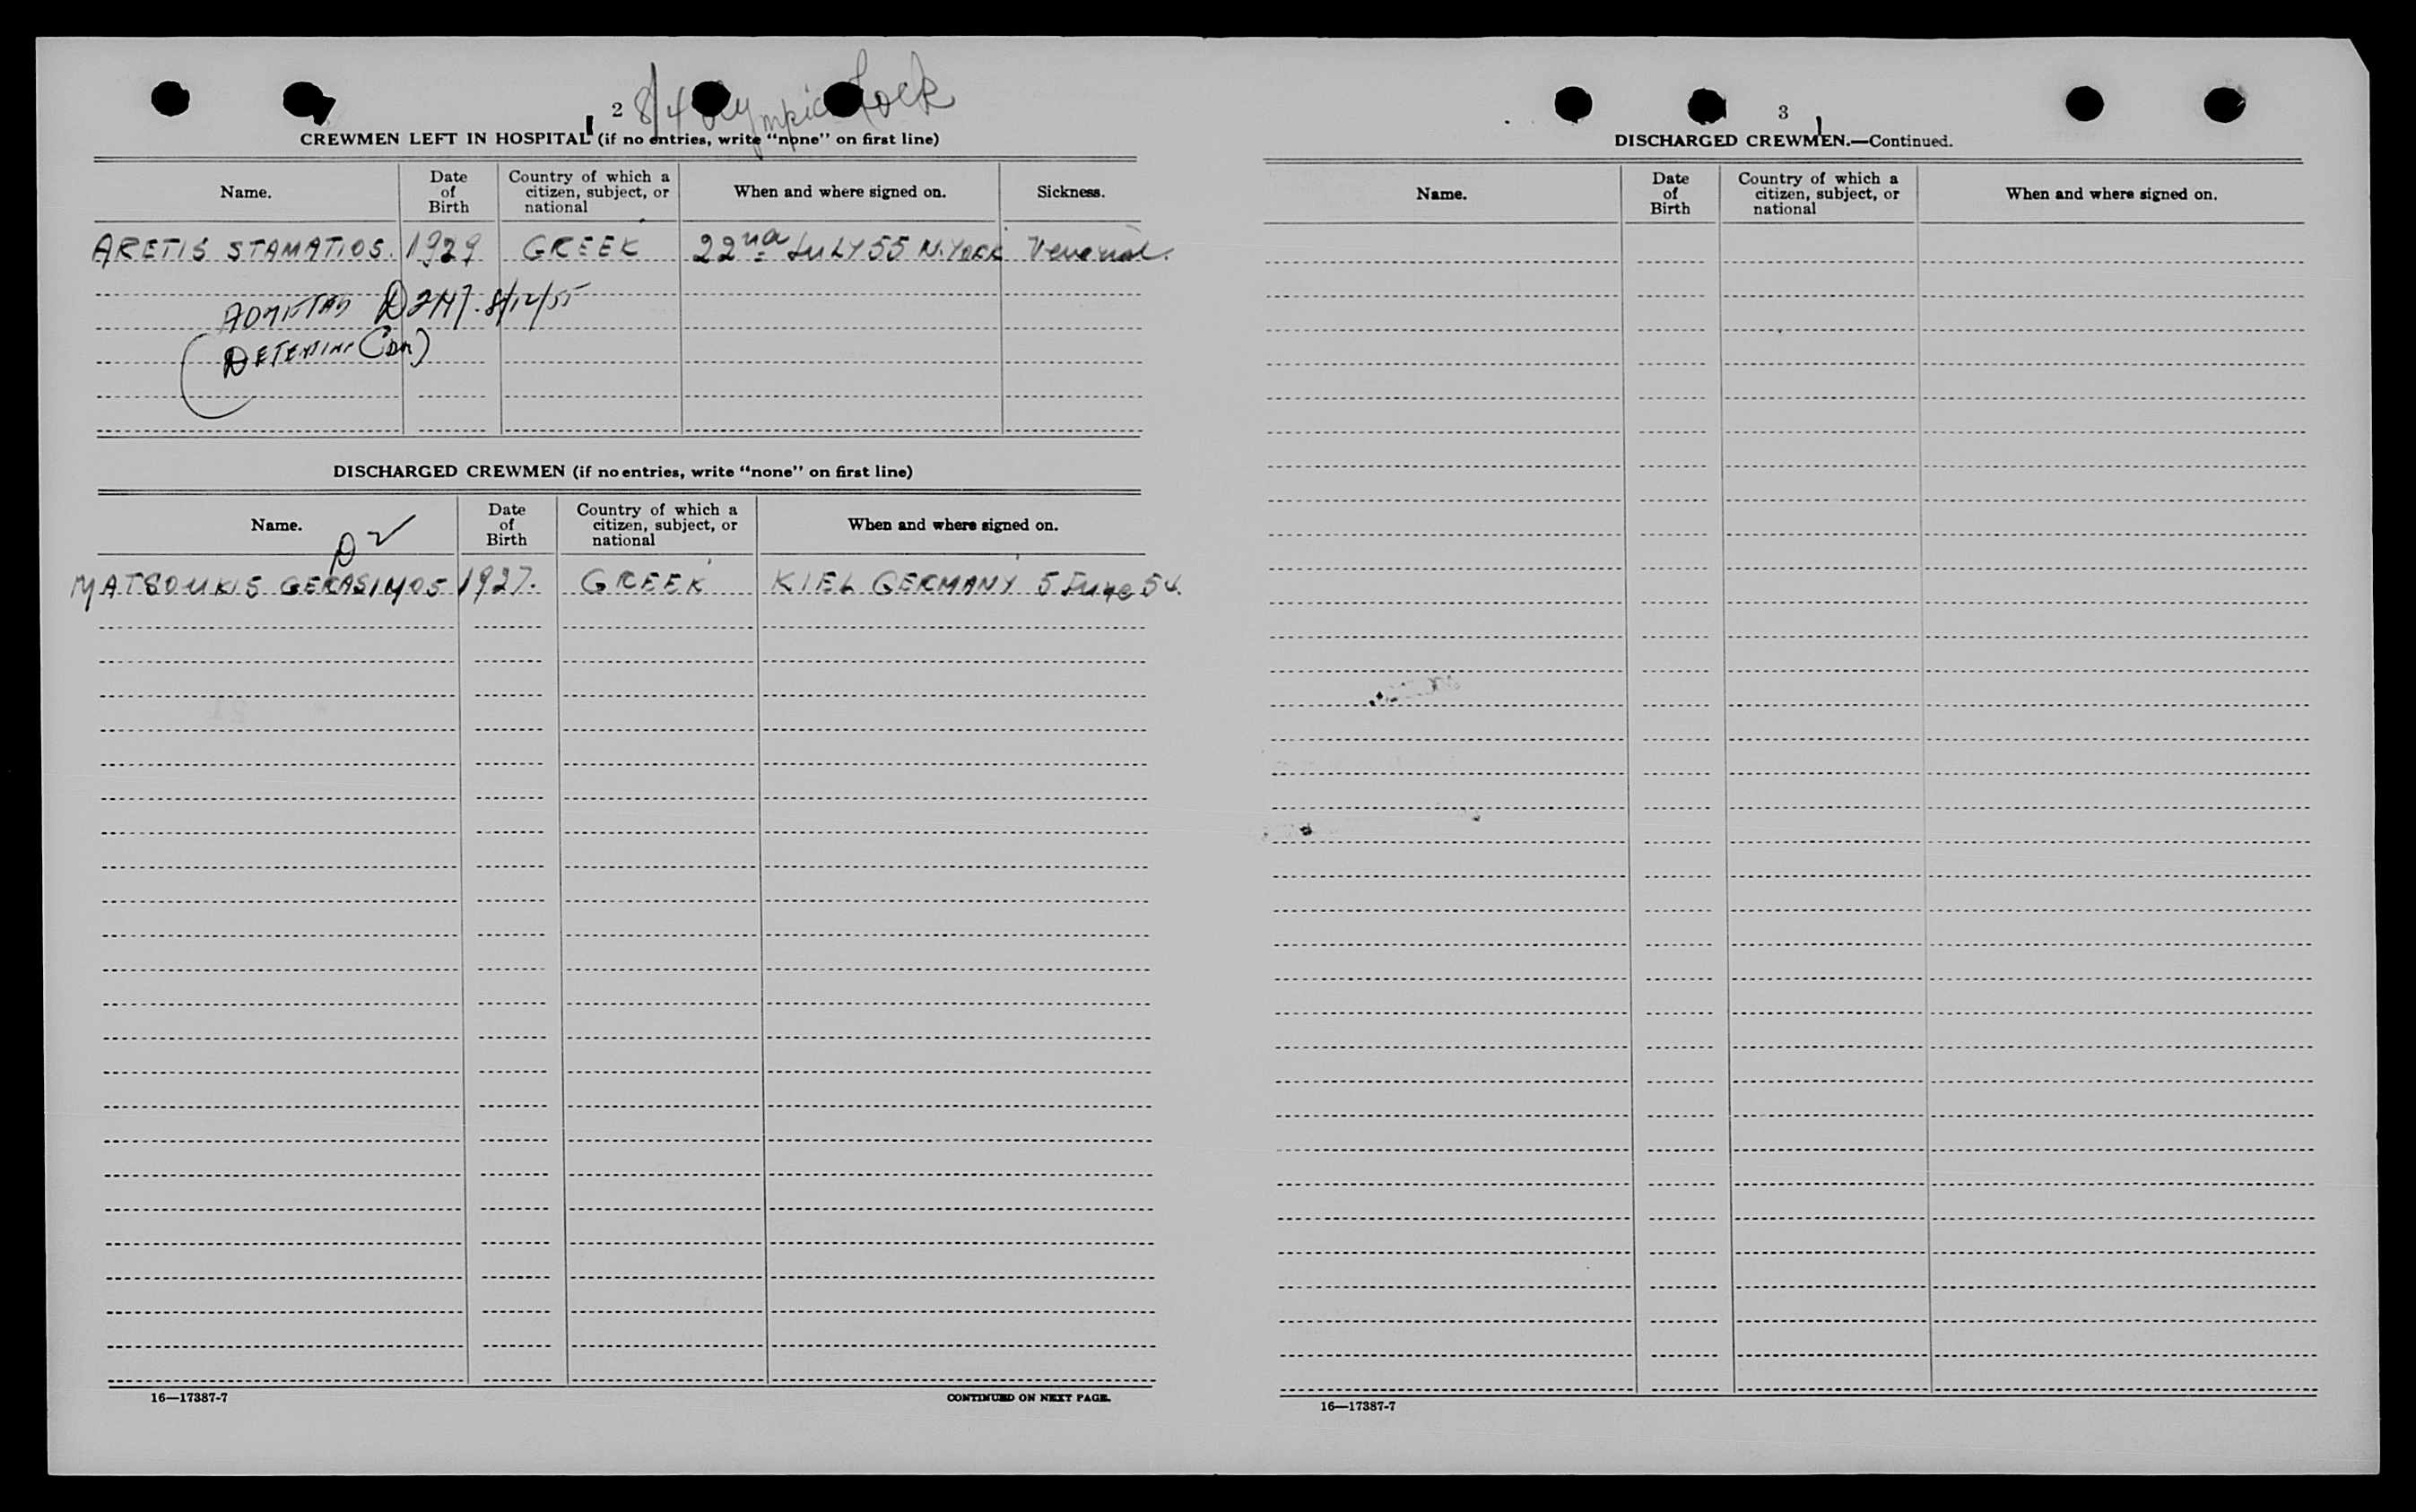 2 8/4 Olympic Rock
CREWMEN LEFT IN HOSPITAL (if no entries, write "none" on first line)
Name. Date of Birth Country of which a citizen, subject, or national When and where signed on. Sickness.
ARETIS STAMATIOS. 1929 GREEK 22nd JULY 55 N. YORK Venerial.
8/12/55
DISCHARGED CREWMEN (if no entries, write "none" on first line)
Name. Date of Birth Country of which a citizen, subject, or national When and where signed on.
D2
MATSOUKIS GERASIMOS 1927. GREEK KIEL GERMANY 5 June 54.
16—17387-7 CONTINUED ON NEXT PAGE.
3
DISCHARGED CREWMEN.—Continued.
Name. Date of Birth Country of which a citizen, subject, or national When and where signed on.
16—17387-7